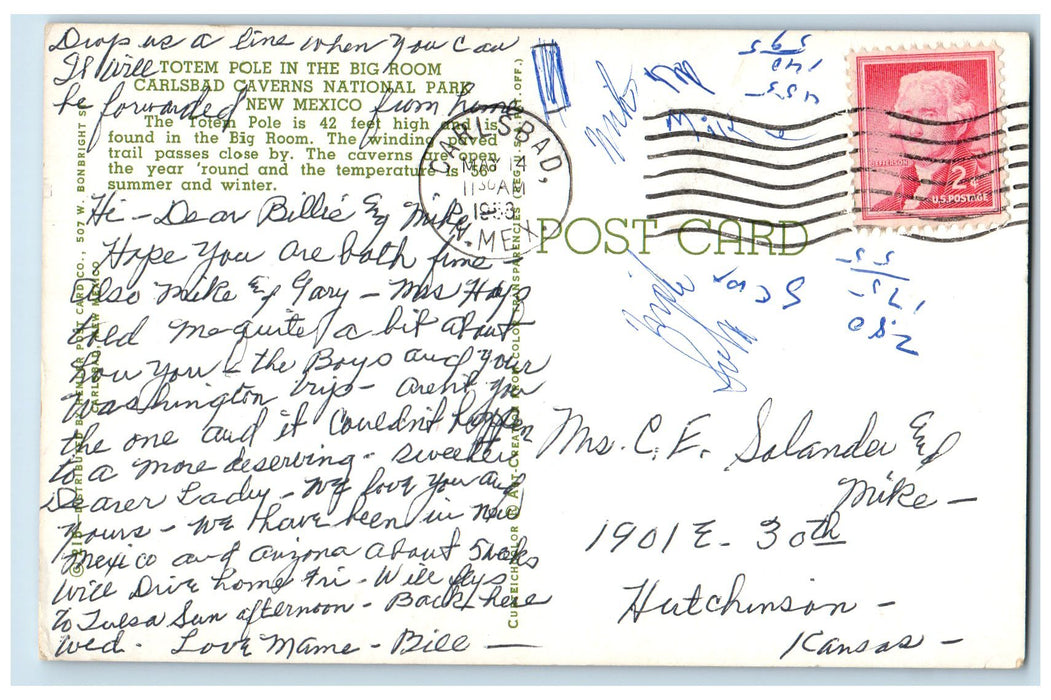 Drop us a line when you can
It will
be forwarded from home
TOTEM POLE IN THE BIG ROOM
CARLSBAD CAVERNS NATIONAL PARK
NEW MEXICO
The Totem Pole is 42 feet high and is
found in the Big Room. The winding paved
trail passes close by. The caverns are open
the year 'round and the temperature is 56°
summer and winter.
Hi - Dear Billie & Mike
Hope you are both fine
Also Mike & Gary - Mrs Hays
told me quite a bit about
how you - the Boys and your
Washington trip - arent you
the one and it Couldn't happen
to a more deserving - sweeter
Dearer Lady - We love you and
yours - We have been in New
Mexico and arizona about 5 weeks
Will Drive home Fri - Will
to Tulsa Sun afternoon - Back here
Wed - Love Mame - Bill -
DISTRIBUTED BY
POST CARD CO., 507 W. BONBRIGHT
CARLSBAD, NEW MEXICO
CURTEICHCOLOR ® ART-CREATION FROM COLOR TRANSPARENCIES (REG. U.S. PAT. OFF.)
CARLSBAD,
MAY 4
11 30 AM
N. MEX
POST CARD
JEFFERSON
2¢
U.S. POSTAGE
Mike
595
140
455
55
175
280
Mrs. C. E. Solander &
Mike -
1901 E - 30th
Hutchinson -
Kansas -